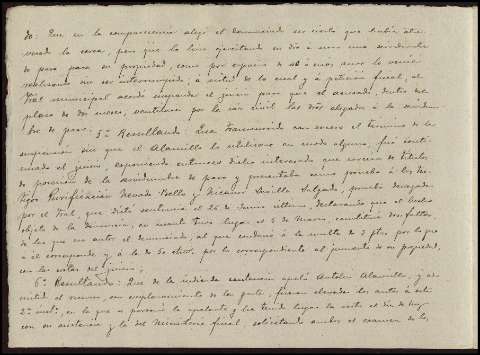 do: Que en la comparecencia alegó el denunciado ser cierto que había atra-
vesado la cerca, pero que lo hizo ejercitando en ello á una servidumbre
de paso para su propiedad, como por espacio de más años lo venía
realizando sin ser interrumpido; á virtud de lo cual y á petición fiscal, el
Tral municipal acordó suspender el juicio para que el acusado, dentro del
plazo de dos meses, ventilara por la vía civil los dros alegados á la servidum-
bre de paso: 5.º Resultando: Que transcurrido con exceso el término de la
suspensión sin que el Alamillo lo utilizase en modo alguno, fué conti-
nuado el juicio, exponiendo entonces dicho interesado que carecía de títulos
de posesión de la servidumbre de paso y presentaba como prueba á los tes-
tigos Purificación Nevado Bello y Nicanor Murillo Salgado, prueba denegada
por el Tral, que dictó sentencia el 26 de Junio último, declarando que el hecho
objeto de la denuncia, en cuanto tuvo lugar el 5 de Marzo, constituía dos faltas,
de las que era autor el denunciado, al que condenó á la multa de 5 ptas. por la que
á él corresponde y á la de 50 ctms. por la correspondiente al jumento de su propiedad,
con las costas del juicio;
6.º Resultando: Que de la indicada sentencia apeló Antolín Alamillo, y ad-
mitido el recurso, con emplazamiento de las partes, fueron elevados los autos á esta
2.ª inst.ª, en la que se personó la apelante y ha tenido lugar la vista el día de hoy
con su asistencia y la del Ministerio fiscal, solicitando ambos el examen de los